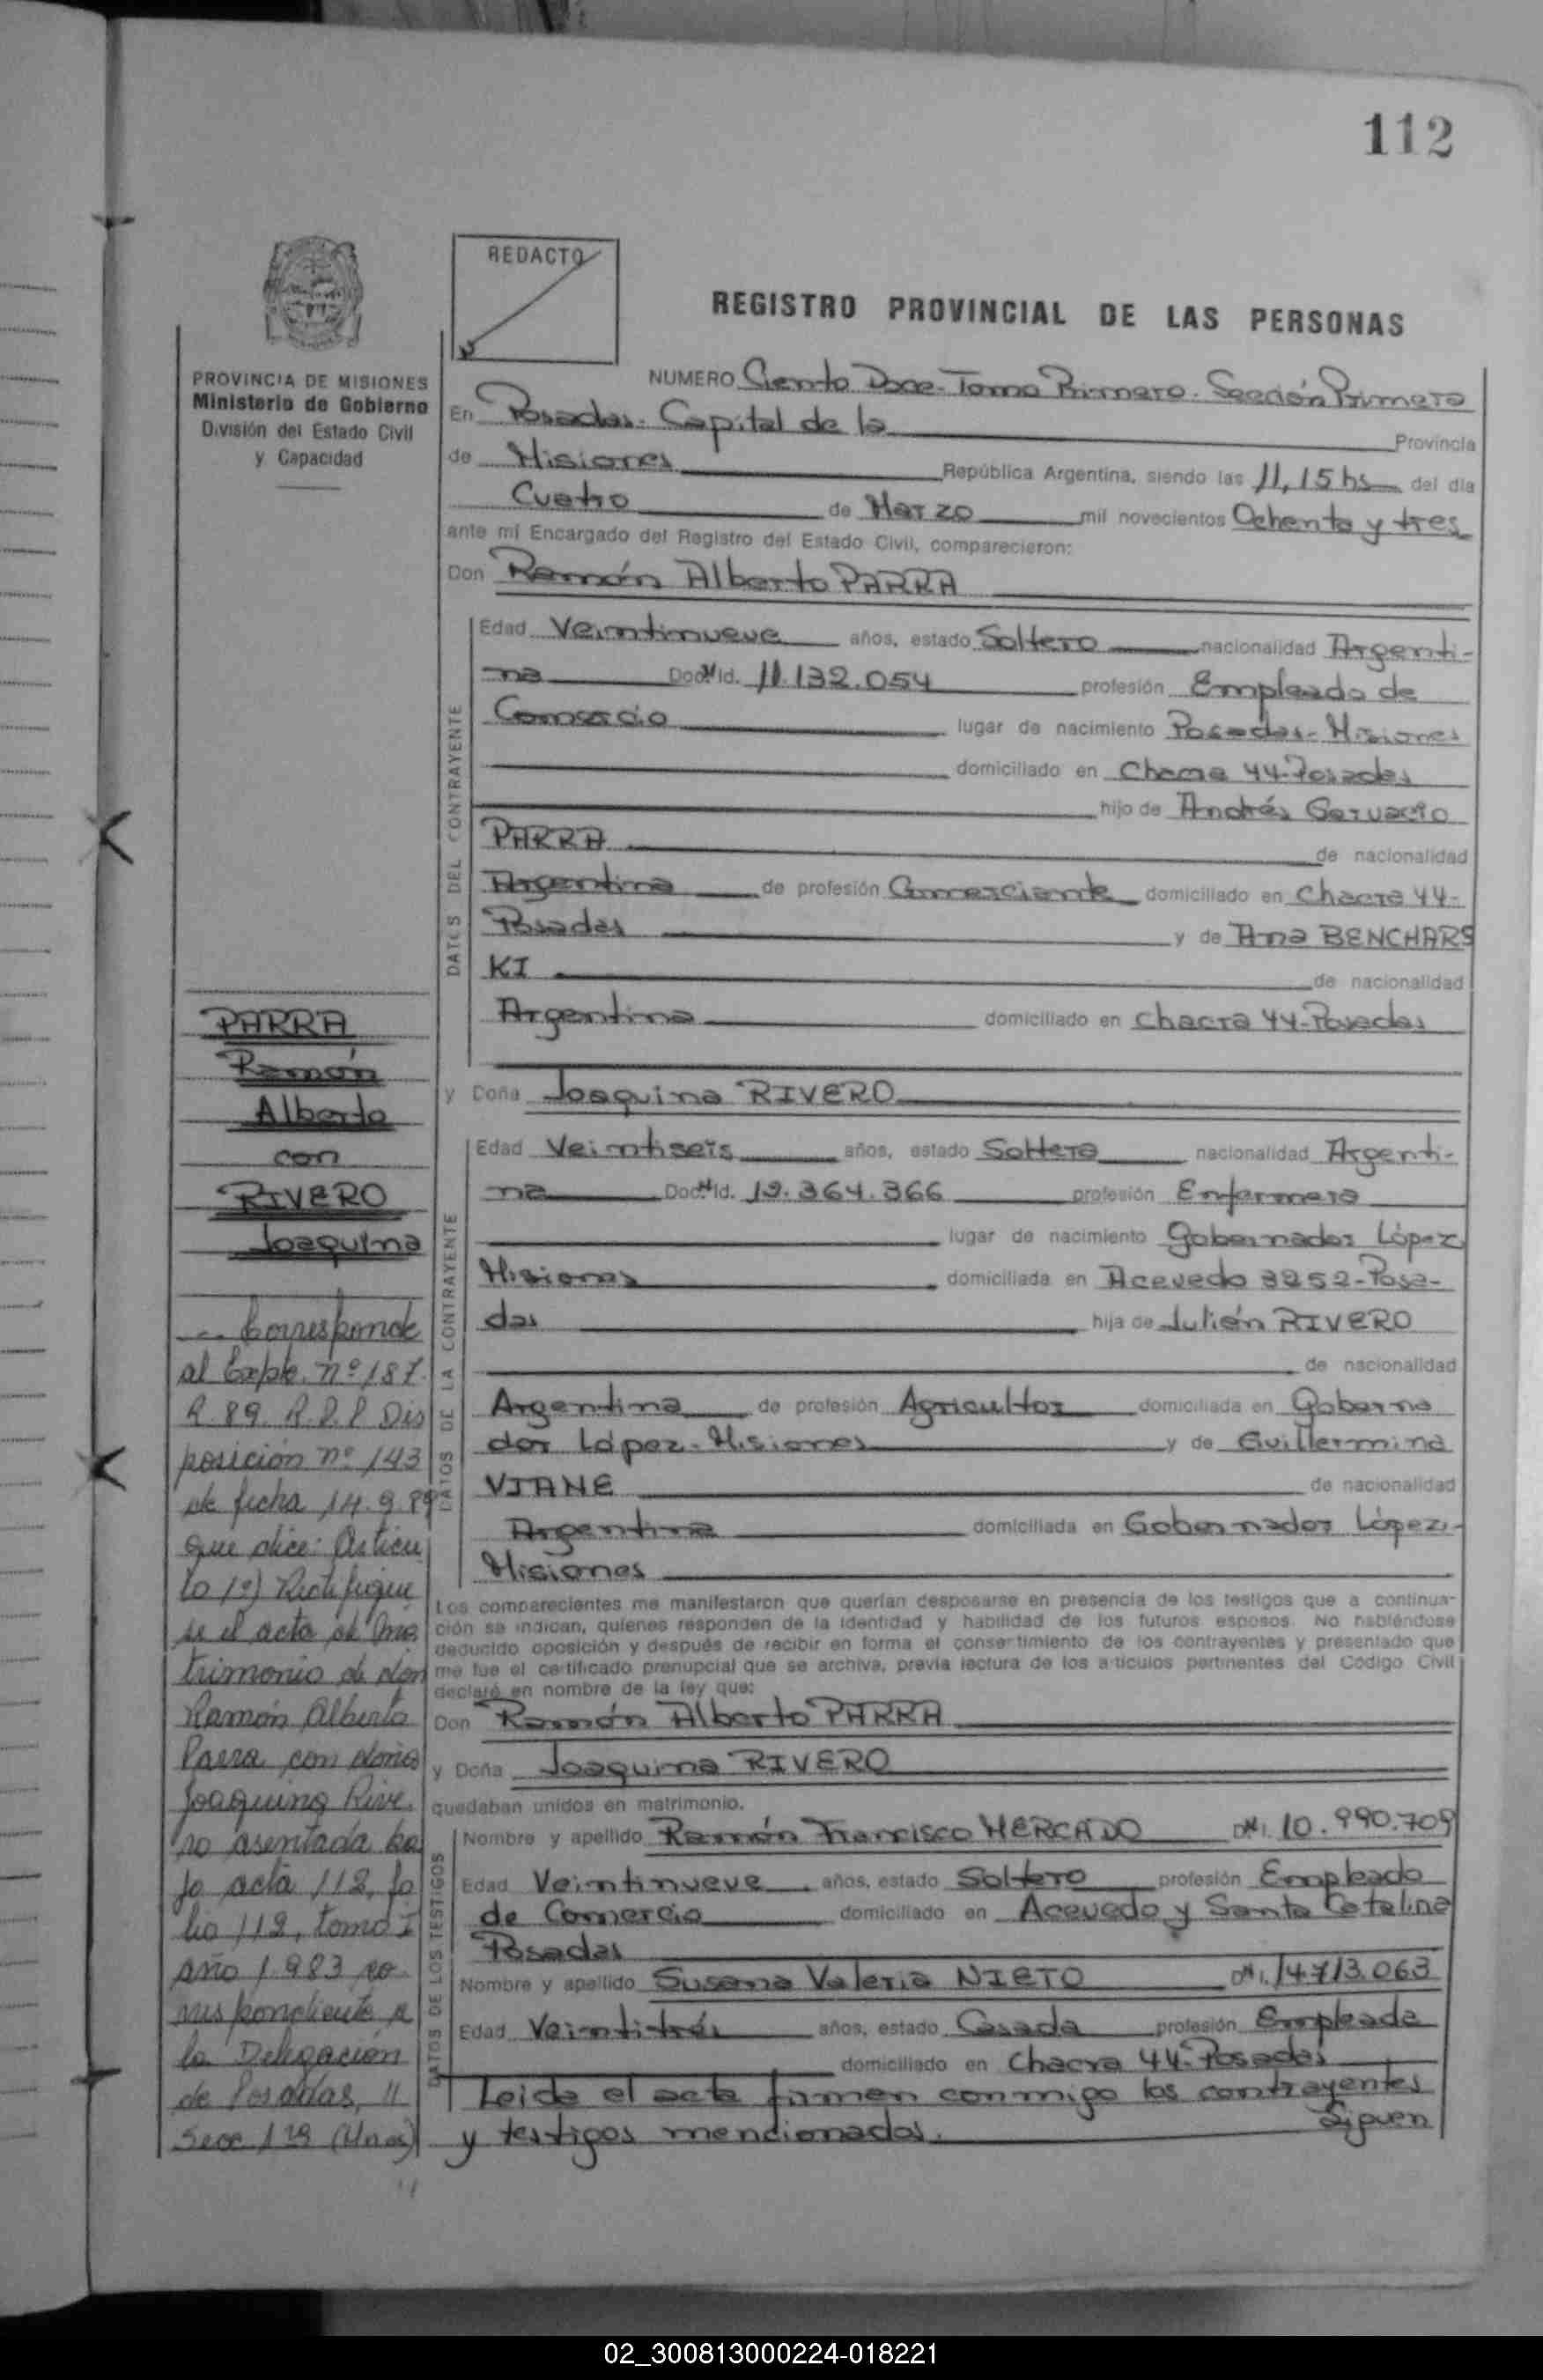 112
REDACTO
REGISTRO PROVINCIAL DE LAS PERSONAS
PROVINCIA DE MISIONES
Ministerio de Gobierno
División del Estado Civil
y Capacidad
NUMERO Ciento Doce- Tomo Primero- Sección Primera
En Posadas- Capital de la Provincia
de Misiones República Argentina, siendo las 11,15 hs del día
Cuatro de Marzo mil novecientos Ochenta y tres
ante mí Encargado del Registro del Estado Civil, comparecieron:
Don Ramón Alberto PARRA
DATOS DEL CONTRAYENTE
Edad Veintinueve años, estado Soltero nacionalidad Argenti-
na Doc. Id. 11.132.054 profesión Empleado de
Comercio lugar de nacimiento Posadas- Misiones
domiciliado en Chacra 44-Posadas
hijo de Andrés Gervacio
PARRA de nacionalidad
Argentina de profesión Comerciante domiciliado en Chacra 44-
Posadas y de Ana BENCHARS
KI de nacionalidad
Argentina domiciliado en Chacra 44-Posadas
y Doña Joaquina RIVERO
DATOS DE LA CONTRAYENTE
Edad Veintiseis años, estado Soltera nacionalidad Argenti-
na Doc. Id. 12.364.366 profesión Enfermera
lugar de nacimiento Gobernador López
Misiones domiciliada en Acevedo 3252-Posa-
das hija de Julián RIVERO
de nacionalidad
Argentina de profesión Agricultor domiciliada en Goberna
dor López- Misiones y de Guillermina
VIANE de nacionalidad
Argentina domiciliada en Gobernador López-
Misiones
Los comparecientes me manifestaron que querían desposarse en presencia de los testigos que a continua-
ción se indican, quienes responden de la identidad y habilidad de los futuros esposos. No habiéndose
deducido oposición y después de recibir en forma el consertimiento de los contrayentes y presentado que
me fue el certificado prenupcial que se archiva, previa lectura de los artículos pertinentes del Código Civil
declaré en nombre de la ley que:
Don Ramón Alberto PARRA
y Doña Joaquina RIVERO
quedaban unidos en matrimonio.
DATOS DE LOS TESTIGOS
Nombre y apellido Ramón Francisco MERCADO DNI. 10.990.709
Edad Veintinueve años, estado Soltero profesión Empleado
de Comercio domiciliado en Acevedo y Santa Catalina
Posadas
Nombre y apellido Susana Valeria NIETO DNI. 14713.063
Edad Veintitrés años, estado Casada profesión Empleada
domiciliado en Chacra 44-Posadas
Leída el acta firman conmigo los contrayentes
y testigos mencionados. Siguen
PARRA
Ramón
Alberto
con
RIVERO
Joaquina
Corresponde
al Expte. nº 187.
R. 89. R.P.P Dis
posición nº 143
de fecha 14.9.89
que dice: Artícu
lo 1º) Rectifíque
se el acta de Ma
trimonio de don
Ramón Alberto
Parra con doña
Joaquina Rive
ro asentada ba
jo acta 112, fo
lio 112, tomo I
año 1.983 co
rrespondiente a
la Delegación
de Posadas,
Secc 1ra (Una)
02_300813000224-018221